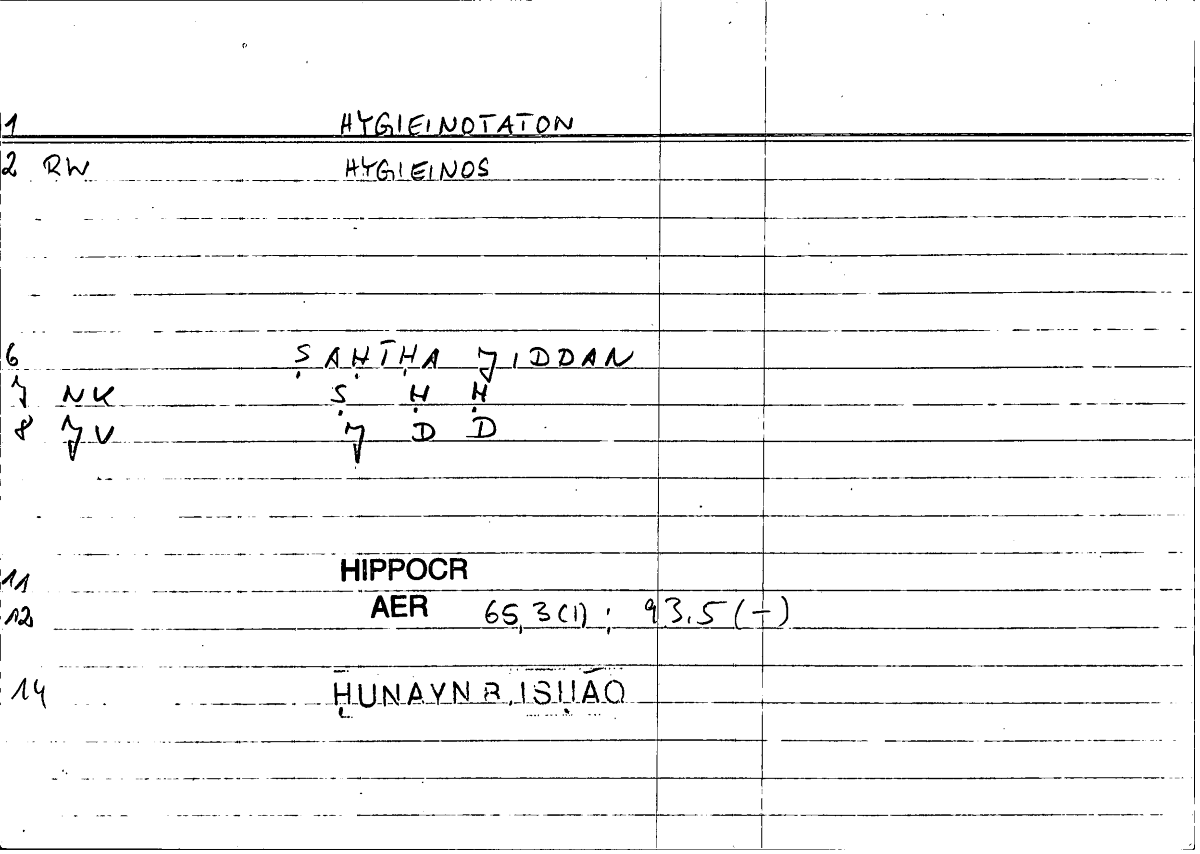 1 HYGIEINOTATON
2 RW HYGIEINOS
6 ṢAḤĪḤA JIDDAN
7 NK Ṣ Ḥ Ḥ
8 JV J D D
11 HIPPOCR
12 AER 65,3(1); 93.5(-)
14 ḤUNAYN B. ISḤĀQ